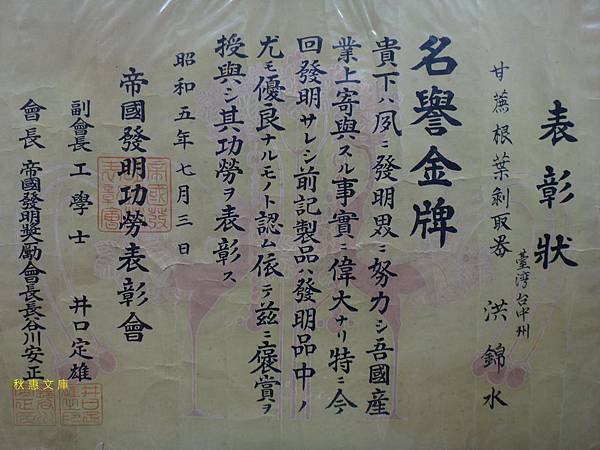 表彰狀
臺灣台中州
甘蔗根葉剝取器 洪錦水
名譽金牌
貴下ハ夙ニ發明界ニ努力シ吾國產
業上寄與スル事實ニ偉大ナリ特ニ今
回發明サレシ前記製品ハ發明品中ノ
尤モ優良ナルモノト認ム依テ茲ニ褒賞ヲ
授與シ其功勞ヲ表彰ス
昭和五年七月三日
帝國發明功勞表彰會
副會長 工學士 井口定雄
會長 帝國發明獎勵會長長谷川安正
秋惠文庫